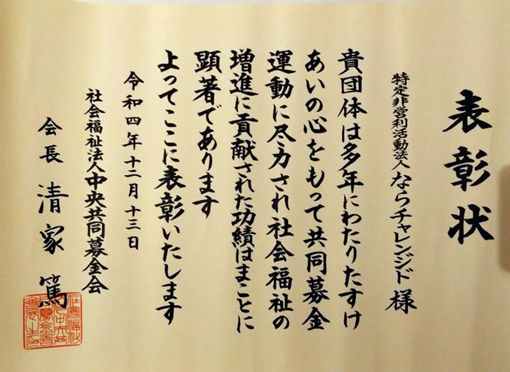 表彰状
特定非営利活動法人 ならチャレンジド 様
貴団体は多年にわたりたすけ
あいの心をもって共同募金
運動に尽力され社会福祉の
増進に貢献された功績はまことに
顕著であります
よってここに表彰いたします
令和四年十二月十三日
社会福祉法人中央共同募金会
会長 清家 篤